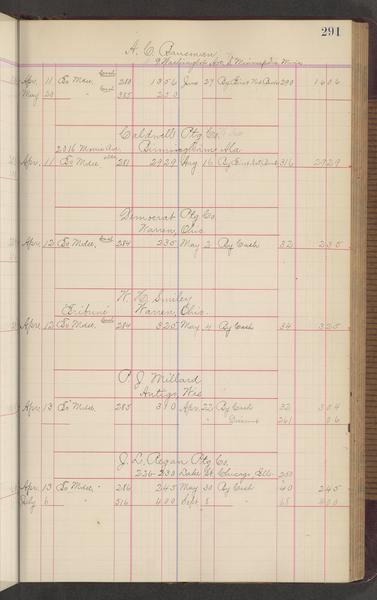 291
A. C. Bausman
9 Washington Ave. S. Minneapolis Minn
Apr. 11 To Mdse. 280 1356 June 29 By First Nat Bank 290 1606
May 20 " 385 250
Caldwell Ptg Co.
2016 Morris Ave. Birmingham Ala
Apr. 11 To Mdse 281 2929 Aug 16 By First Nat Bank 316 2929
Democrat Ptg Co
Warren, Ohio.
Apr. 12 To Mdse. 284 235 May 2 By Cash 32 235
W. H. Smiley
"Tribune" Warren, Ohio.
Apr. 12 To Mdse. 284 325 May 4 By Cash 34 325
P. J. Millard
Antigo, Wis
Apr. 13 To Mdse. 285 310 Apr. 22 By Cash 32 304
" Discount 241 06
J. L. Regan Ptg Co.
226-230 Lake St. Chicago, Ills.
Apr. 13 To Mdse. 286 245 May 30 By Cash 40 245
July 6 " 516 400 Sept 8 " 68 400